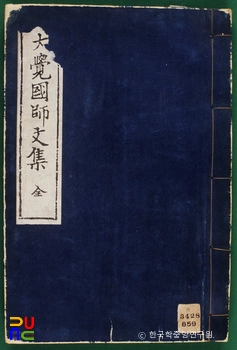 大覺國師文集 全
3428
859
ⓒ 한국학중앙연구원